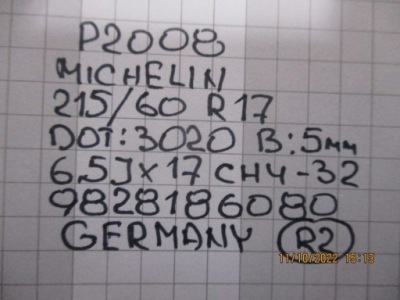 P2008
MICHELIN
215/60 R17
DOT:3020 B:5мм
6,5J×17 CH4-32
9828186080
GERMANY R2
11/10/2022 15:13